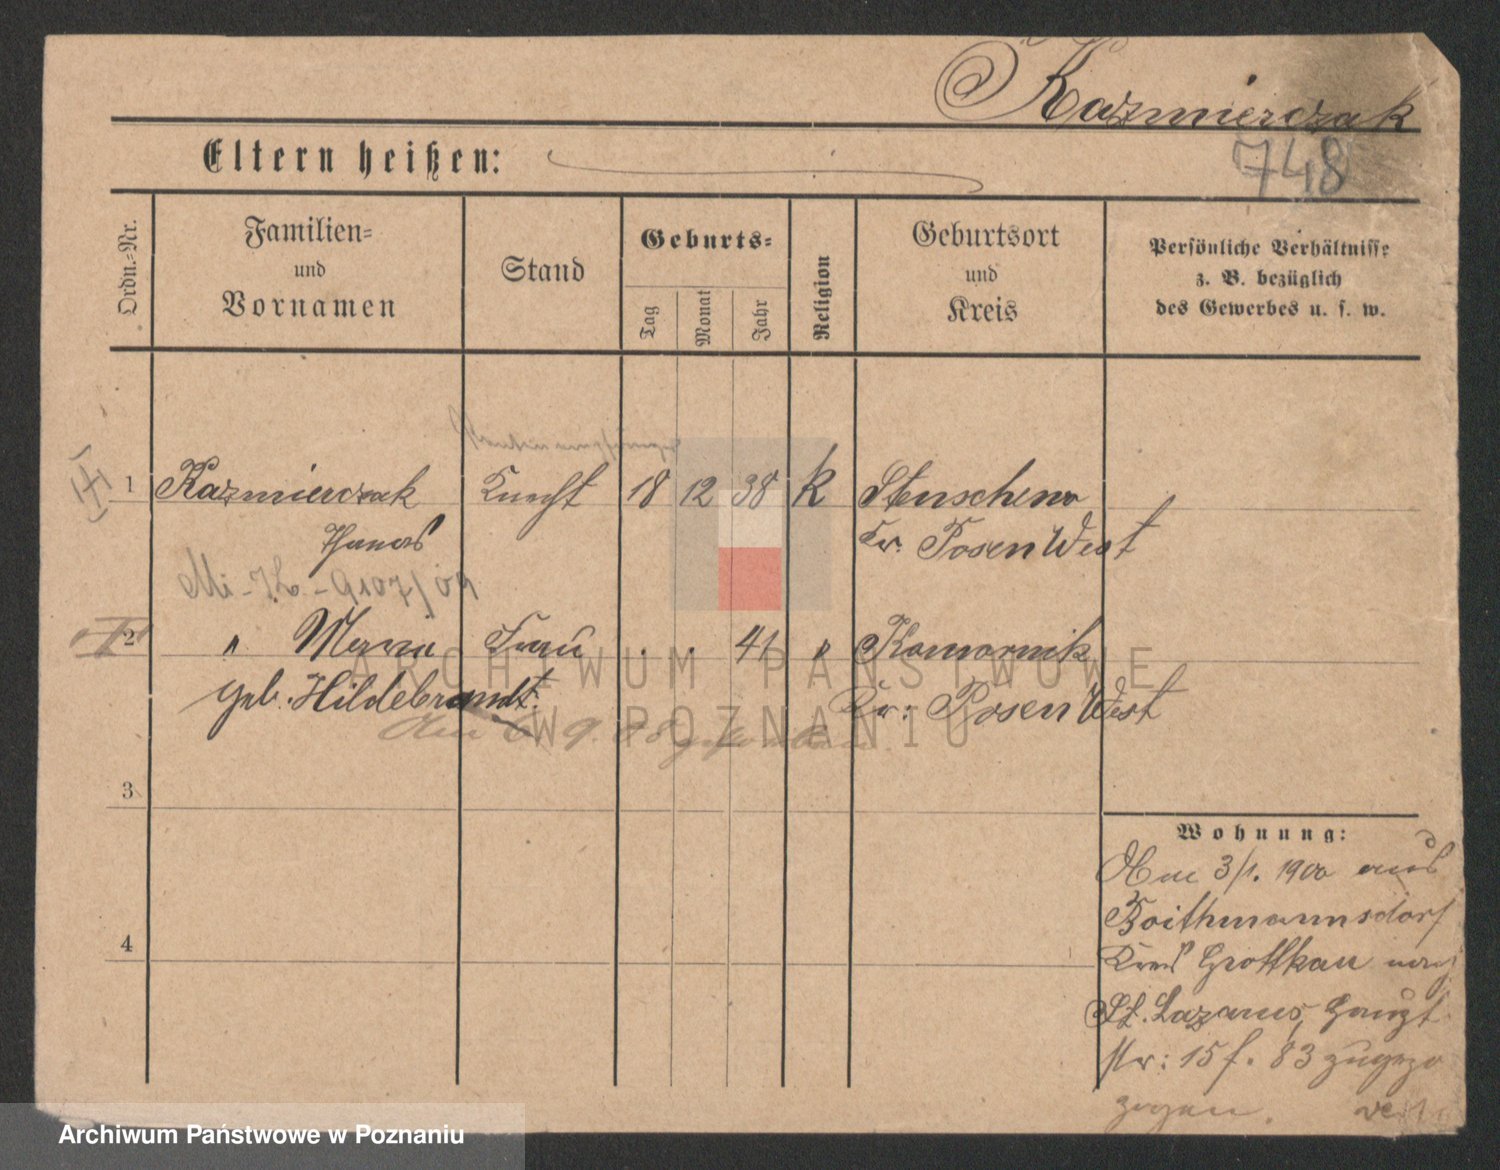 Kazmierczak
748
Eltern heißen:
Ordn.-Nr.
Familien-
und
Vornamen
Stand
Geburts-
Tag
Monat
Jahr
Religion
Geburtsort
und
Kreis
Persönliche Verhältnisse
z. B. bezüglich
des Gewerbes u. s. w.
1 Kazmierczak Knecht 18 12 38 k Stenschewo
Kr. Posen West
Mi - - 9107/09
2 " Maria Frau . . 41 " Komornik
geb. Hildebrandt. Kr: Posen West
Am 6 9. 08
3
4
Wohnung:
Am 3/1. 1900 aus
Kreis Grottkau nach
St. Lazarus, Haupt
str: 15 f. 83 zugezo
zogen.
ARCHIWUM PAŃSTWOWE
W POZNANIU
Archiwum Państwowe w Poznaniu